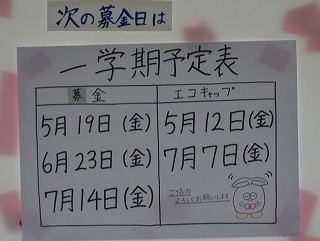 次の募金日は
一学期予定表
募金 エコキャップ
5月19日(金) 5月12日(金)
6月23日(金) 7月7日(金)
7月14日(金)
ご協力
よろしくお願いします